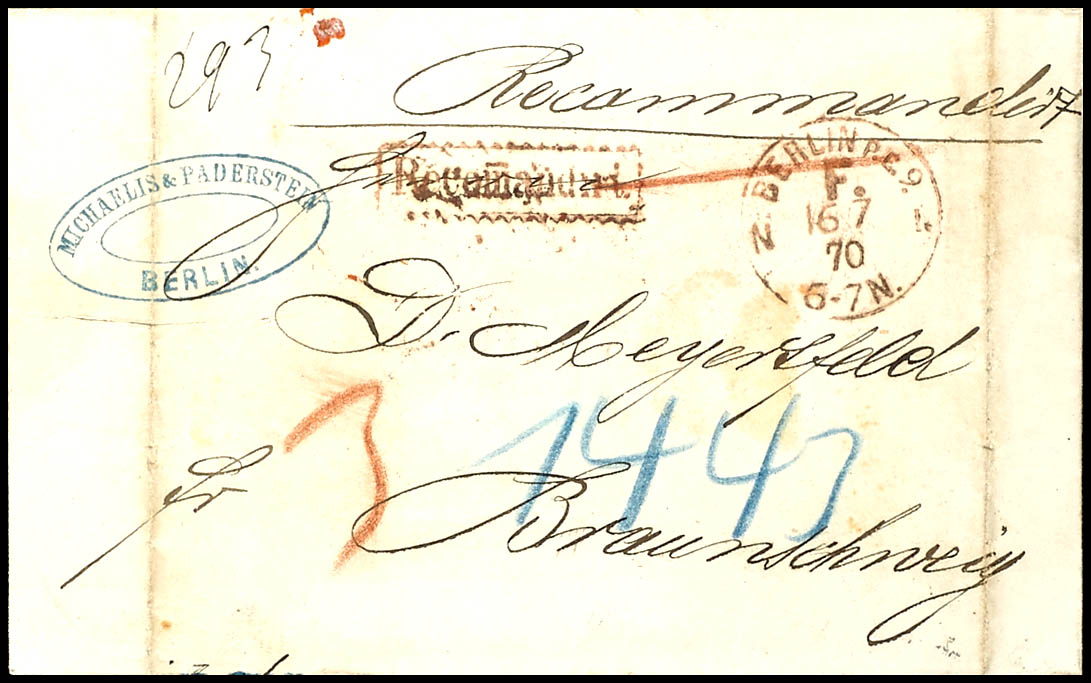 293
Recommandirt
Recomandirt.
MICHAELIS & PADERSTEIN
BERLIN.
N. BERLIN P.E.9.
F.
16 7
70
6-7N.
D. Meyersfeld
fr
Braunschweig